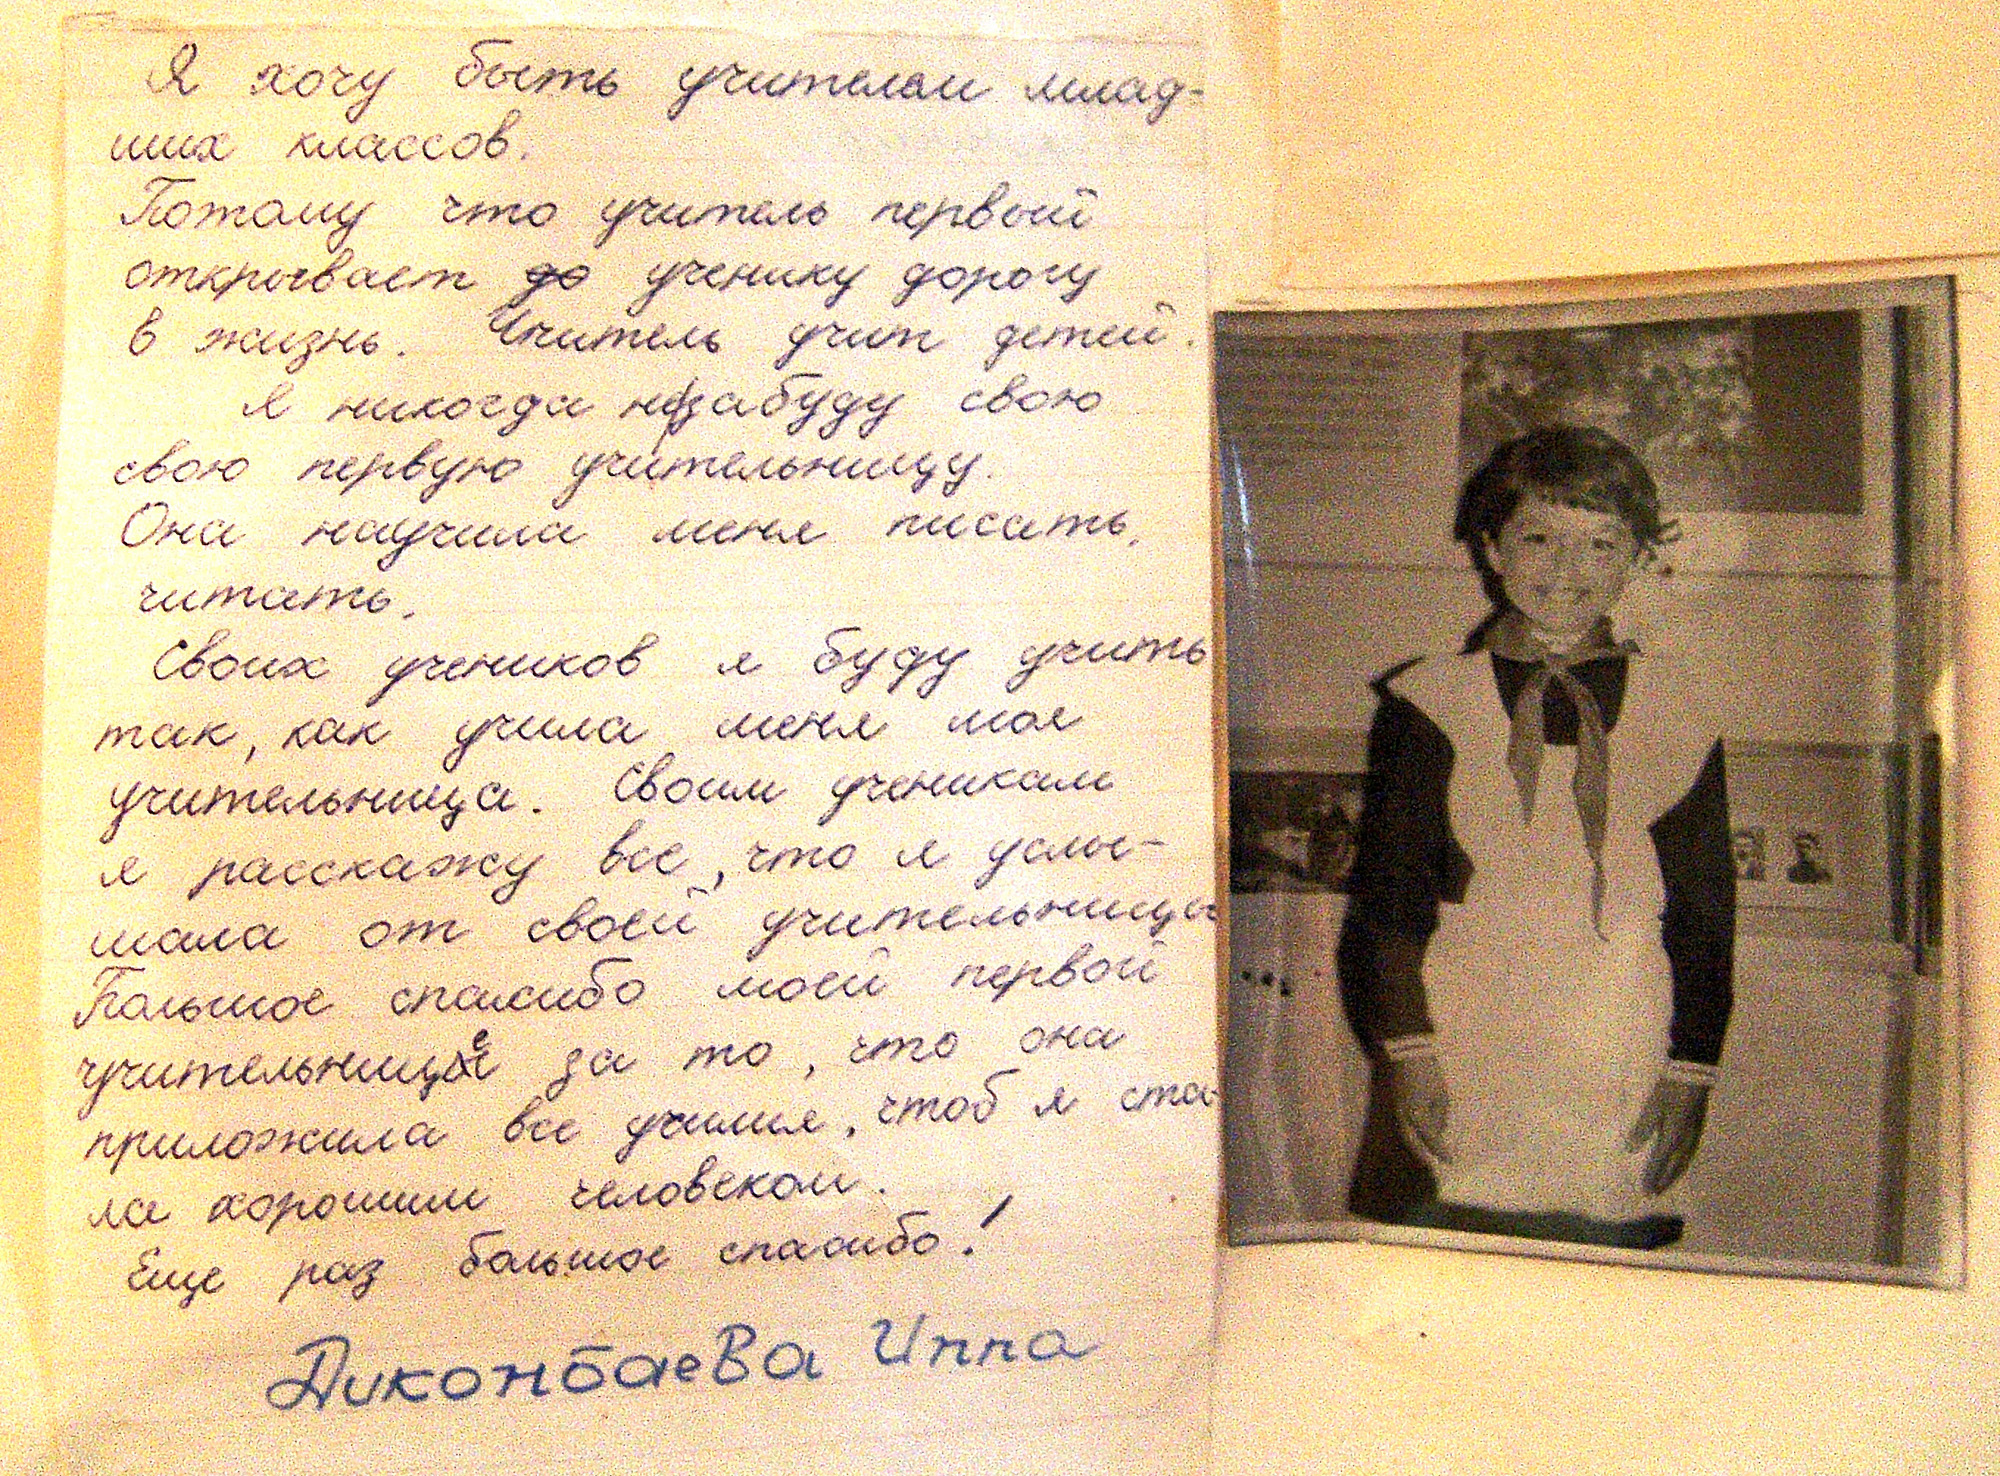 Я хочу быть учителем млад-
ших классов.
Потому что учитель первый
открывает до ученику дорогу
в жизнь. Учитель учит детей.
Я никогда не забуду свою
свою первую учительницу.
Она научила меня писать,
читать.
Своих учеников я буду учить
так, как учила меня моя
учительница. Своим ученикам
я расскажу все, что я услы-
шала от своей учительницы
Большое спасибо моей первой
учительнице за то, что она
приложила все, чтоб я ста-
ла хорошим человеком.
Еще раз большое спасибо!
Инна